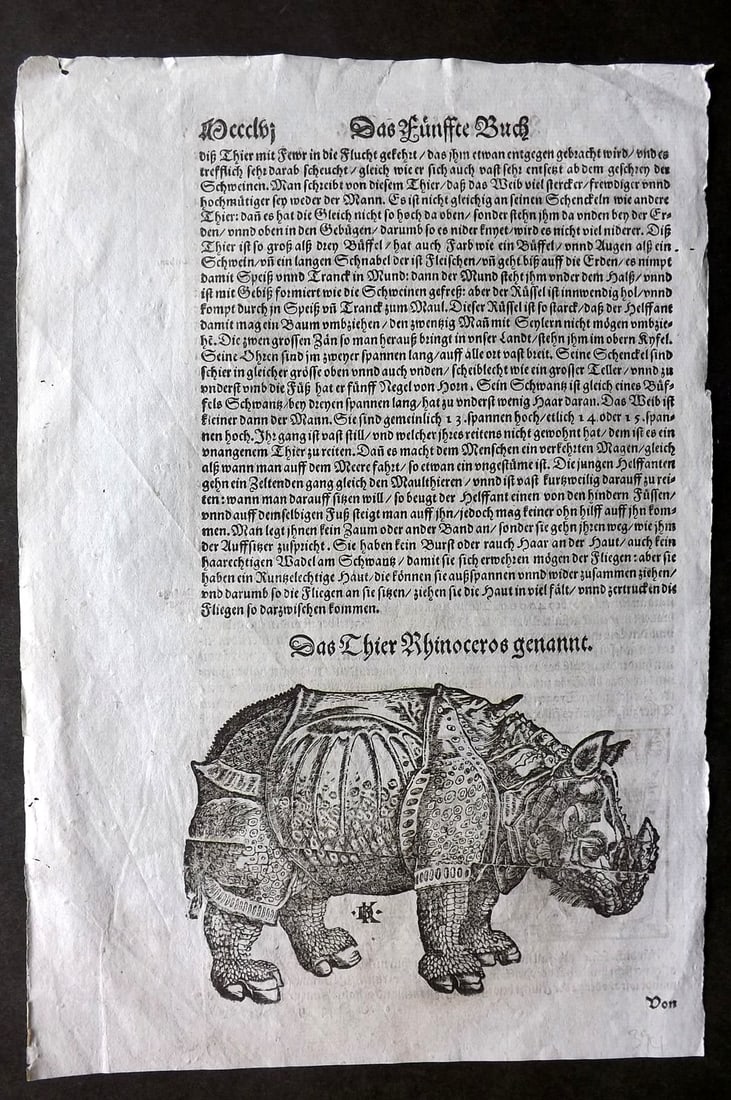 Mccclvj Das Fünffte Buch
diß Thier mit Fewr in die Flucht gekehrt / das jhm etwan entgegen gebracht wird / vnd es
trefflich sehr darab scheucht / gleich wie er sich auch vast sehr entsetzt ab dem geschrey der
Schweinen. Man schreibt von diesem Thier / daß das Weib viel stercker / frewdiger vnnd
hochmütiger sey weder der Mann. Es ist nicht gleichig an seinen Schenckeln wie andere
Thier: dañ es hat die Gleich nicht so hoch da oben / sonder stehn jhm da vnden bey der Er-
den / vnnd oben in den Gebügen / darumb so es nider knyet / wird es nicht viel niderer. Diß
Thier ist so groß alß drey Büffel / hat auch Farb wie ein Büffel / vnnd Augen alß ein
Schwein / vñ ein langen Schnabel der ist Fleischen / vñ geht biß auff die Erden / es nimpt
damit Speiß vnnd Tranck in Mund: dann der Mund steht jhm vnder dem Halß / vnnd
ist mit Gebiß formiert wie die Schweinen gefreß: aber der Rüssel ist innwendig hol / vnnd
kompt durch jn Speiß vñ Tranck zum Maul. Dieser Rüssel ist so starck / daß der Helffant
damit mag ein Baum vmbziehen / den zwentzig Mañ mit Seylern nicht mögen vmbzie-
hē. Die zwen grossen Zän so man herauß bringt in vnser Landt / stehn jhm im obern Kyfel.
Seine Ohren sind jm zweyer spannen lang / auff alle ort vast breit. Seine Schenckel sind
schier in gleicher grösse oben vnnd auch vnden / scheiblecht wie ein grosser Teller / vnnd zu
vnderst vmb die Füß hat er fünff Negel von Horn. Sein Schwantz ist gleich eines Büf-
fels Schwantz / bey dreyen spannen lang / hat zu vnderst wenig Haar daran. Das Weib ist
kleiner dann der Mann. Sie sind gemeinlich 13. spannen hoch / etlich 14 oder 15. span-
nen hoch. Ihr gang ist vast still / vnd welcher jhres reitens nicht gewohnt hat / dem ist es ein
vnangenem Thier zu reiten. Dañ es macht dem Menschen ein verkehrten Magen / gleich
alß wann man auff dem Meere fahrt / so etwan ein vngestüme ist. Die jungen Helffanten
gehn ein Zeltenden gang gleich den Maulthieren / vnnd ist vast kurtzweilig darauff zu rei-
ten: wann man darauff sitzen will / so beugt der Helffant einen von den hindern Füssen /
vnnd auff demselbigen Fuß steigt man auff jhn / jedoch mag keiner ohn hilff auff jhn kom-
men. Man legt jhnen kein Zaum oder ander Band an / sonder sie gehn jhren weg / wie jhm
der Auffsitzer zuspricht. Sie haben kein Burst oder rauch Haar an der Haut / auch kein
haarechtigen Wadel am Schwantz / damit sie sich erwehren mögen der Fliegen: aber sie
haben ein Runtzelechtige Haut / die können sie außspannen vnnd wider zusammen ziehen /
vnd darumb so die Fliegen an sie sitzen / ziehen sie die Haut in viel fält / vnnd zertrucken die
Fliegen so darzwischen kommen.
Das Thier Rhinoceros genannt.
HK
Von